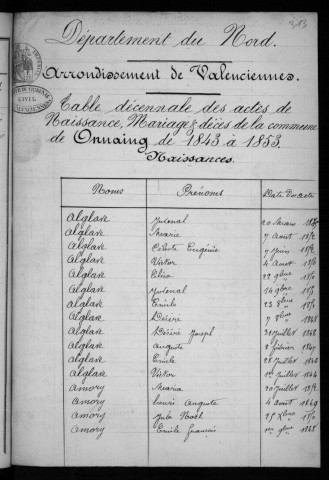 313
Département du Nord.
Arrondissement de Valenciennes.
Table décennale des actes de
Naissance, Mariage & décès de la commune
de Onnaing de 1843 à 1853.
Naissances.
Noms Prénoms Date des acte
Alglave Juvenal 20 Mars
Alglave Marie 7 Août
Alglave Céleste Eugénie 7 Juin
Alglave Victor 4 Août
Alglave Elisa 22 9bre
Alglave Juvenal 14 9bre
Alglave Emile 23 8bre
Alglave Désiré 7 8bre 1848
Alglave Désiré Joseph 31 Juillet 1848
Alglave Auguste 8 février
Alglave Emile 28 Juillet
Alglave Victor Juillet 1844
Amory Maria 20 Juillet
Amory Henri Auguste 4 Août 1849
Amory Jules Noël 25 Xbre
Amory Emile François 9bre 1848